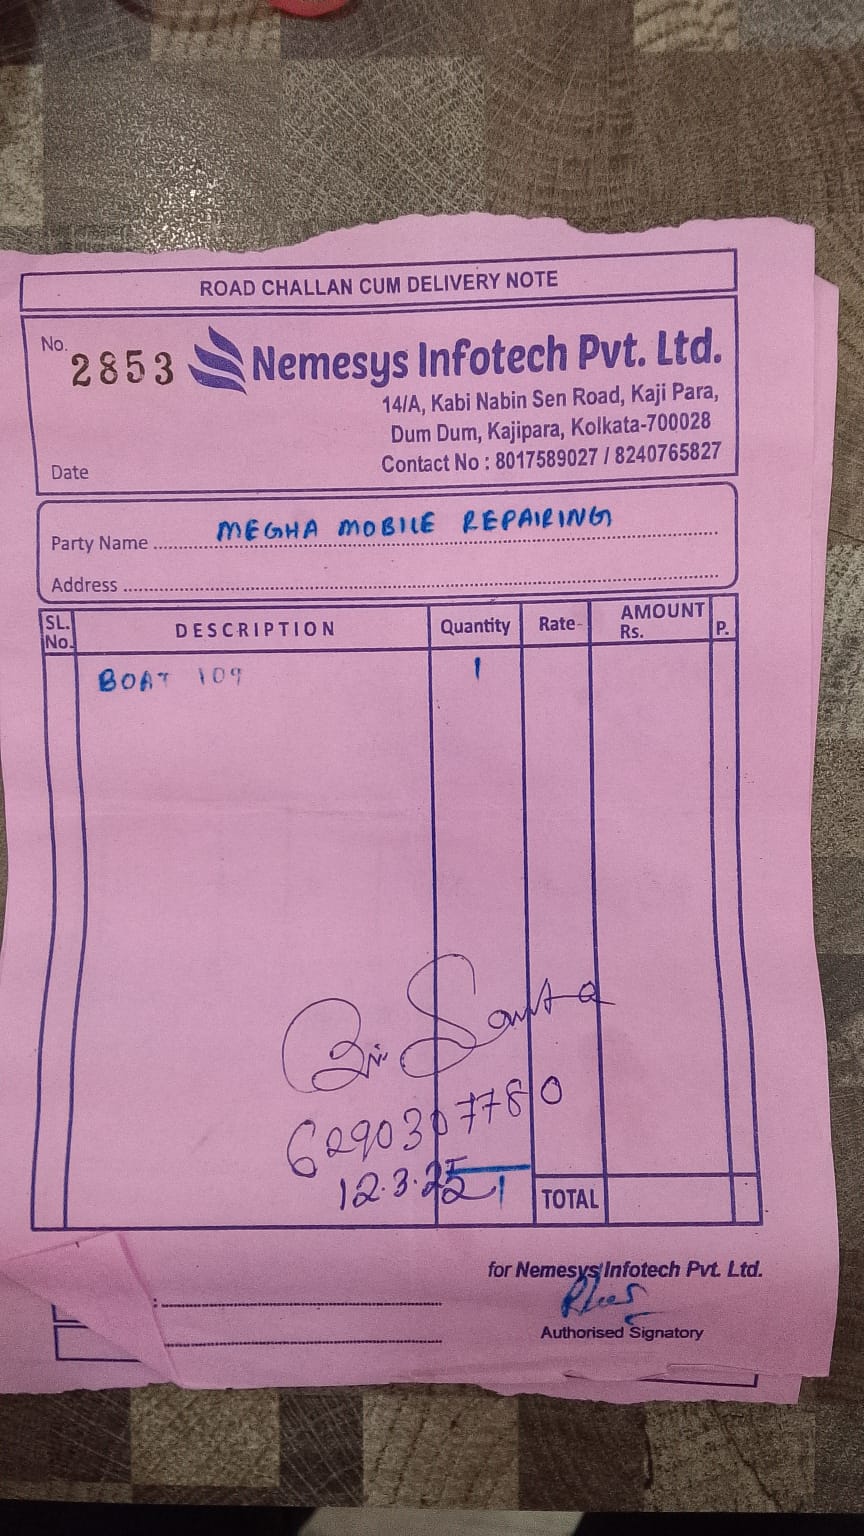 ROAD CHALLAN CUM DELIVERY NOTE
No. 2853
Nemesys Infotech Pvt. Ltd.
14/A, Kabi Nabin Sen Road, Kaji Para,
Dum Dum, Kajipara, Kolkata-700028
Contact No : 8017589027 / 8240765827
Date
Party Name MEGHA MOBILE REPAIRING
Address
SL. No. DESCRIPTION Quantity Rate AMOUNT Rs. P.
BOAT 109 1
6290307780
12.3.25
1 TOTAL
for Nemesys Infotech Pvt. Ltd.
Authorised Signatory